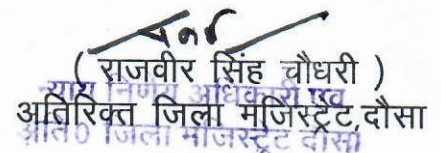 ( राजवीर सिंह चौधरी )
न्याय निर्णय अधिकारी एवं
अतिरिक्त जिला मजिस्ट्रेट,दौसा
अति0 जिला मजिस्ट्रेट दौसा